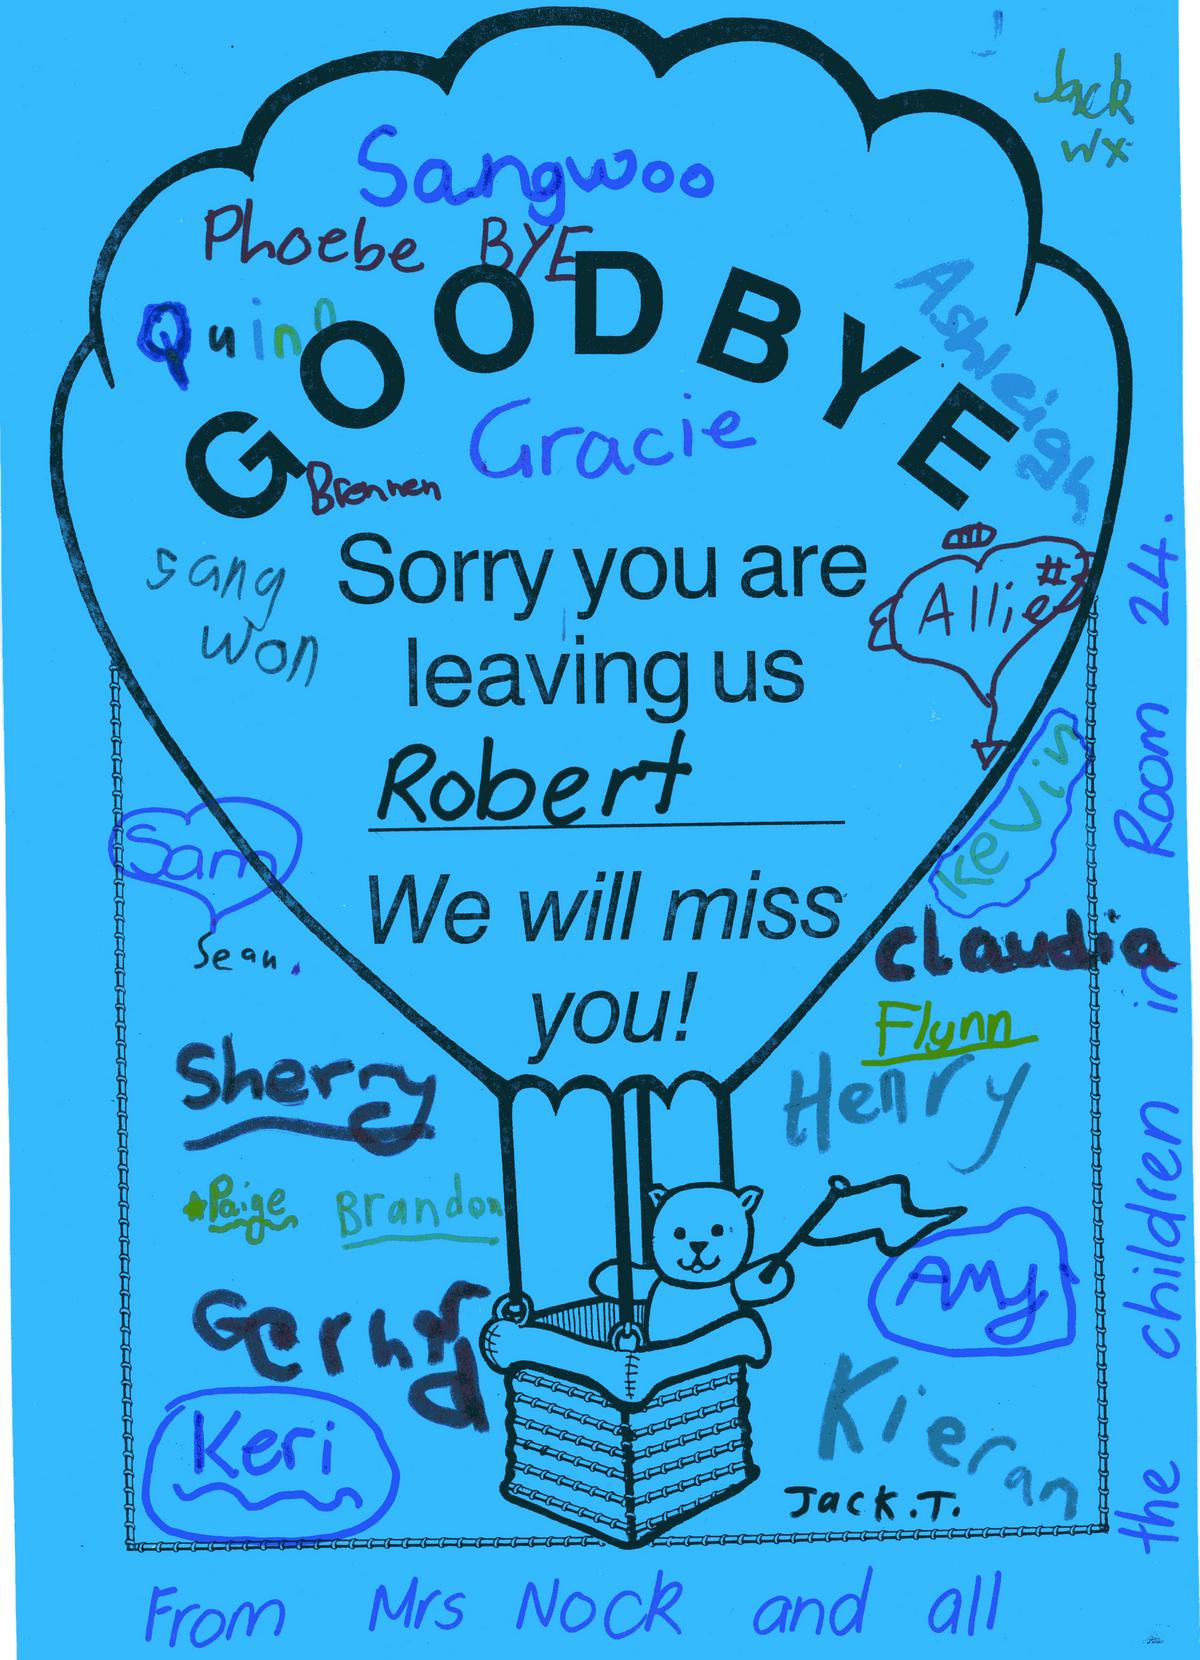 Jack
Wx
Sangwoo
Phoebe BYE
Quinn
GOODBYE
Ashleigh
Gracie
Brennen
sang
Won
Sorry you are
leaving us
Robert
Allie #
We will miss
you!
Kevin
Sam
Sean.
Claudia
Flynn
Henry
Sherry
Paige
Brandon
Gerhard
AMy
Keri
Kieran
Jack.T.
From Mrs Nock and all
the children in Room 24.